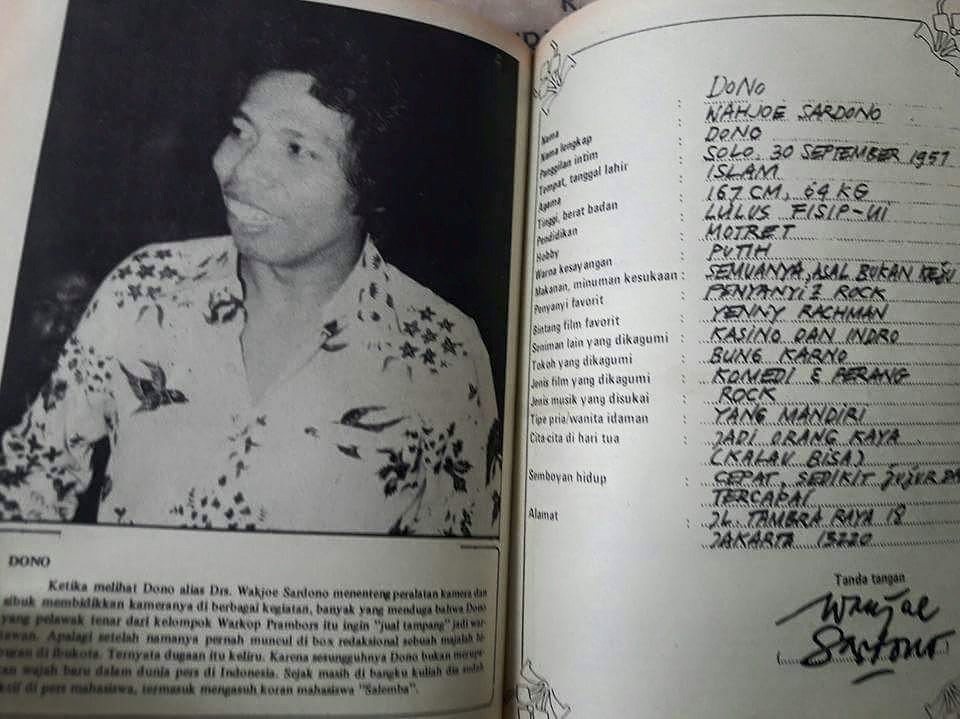 DONO
Ketika melihat Dono alias Drs. Wakjoe Sardono menenteng peralatan kamera dan
sibuk membidikkan kameranya di berbagai kegiatan, banyak yang menduga bahwa Dono
yang pelawak tenar dari kelompok Warkop Prambors itu ingin "jual tampang" jadi war-
tawan. Apalagi setelah namanya pernah muncul di box redaksional sebuah majalah hi-
buran di ibukota. Ternyata dugaan itu keliru. Karena sesungguhnya Dono bukan merupa-
kan wajah baru dalam dunia pers di Indonesia. Sejak masih di bangku kuliah dia sudah
aktif di pers mahasiswa, termasuk mengasuh koran mahasiswa "Salemba".
Nama : DONO
Nama lengkap : WAHJOE SARDONO
Panggilan intim : DONO
Tempat, tanggal lahir : SOLO, 30 SEPTEMBER 1951
Agama : ISLAM
Tinggi, berat badan : 167 CM, 64 KG
Pendidikan : LULUS FISIP-UI
Hobby : MOTRET
Warna kesayangan : PUTIH
Makanan, minuman kesukaan : SEMUANYA, ASAL BUKAN KEJU
Penyanyi favorit : PENYANYI2 ROCK
Bintang film favorit : YENNY RACHMAN
Seniman lain yang dikagumi : KASINO DAN INDRO
Tokoh yang dikagumi : BUNG KARNO
Jenis film yang dikagumi : KOMEDI & PERANG
Jenis musik yang disukai : ROCK
Tipe pria/wanita idaman : YANG MANDIRI
Cita-cita di hari tua : JADI ORANG KAYA
(KALAU BISA)
Semboyan hidup : CEPAT, SEDIKIT JUJUR
TERCAPAI
Alamat : JL. TAMBRA RAYA 18
JAKARTA 13220
Tanda tangan
Wahjoe
Sardono